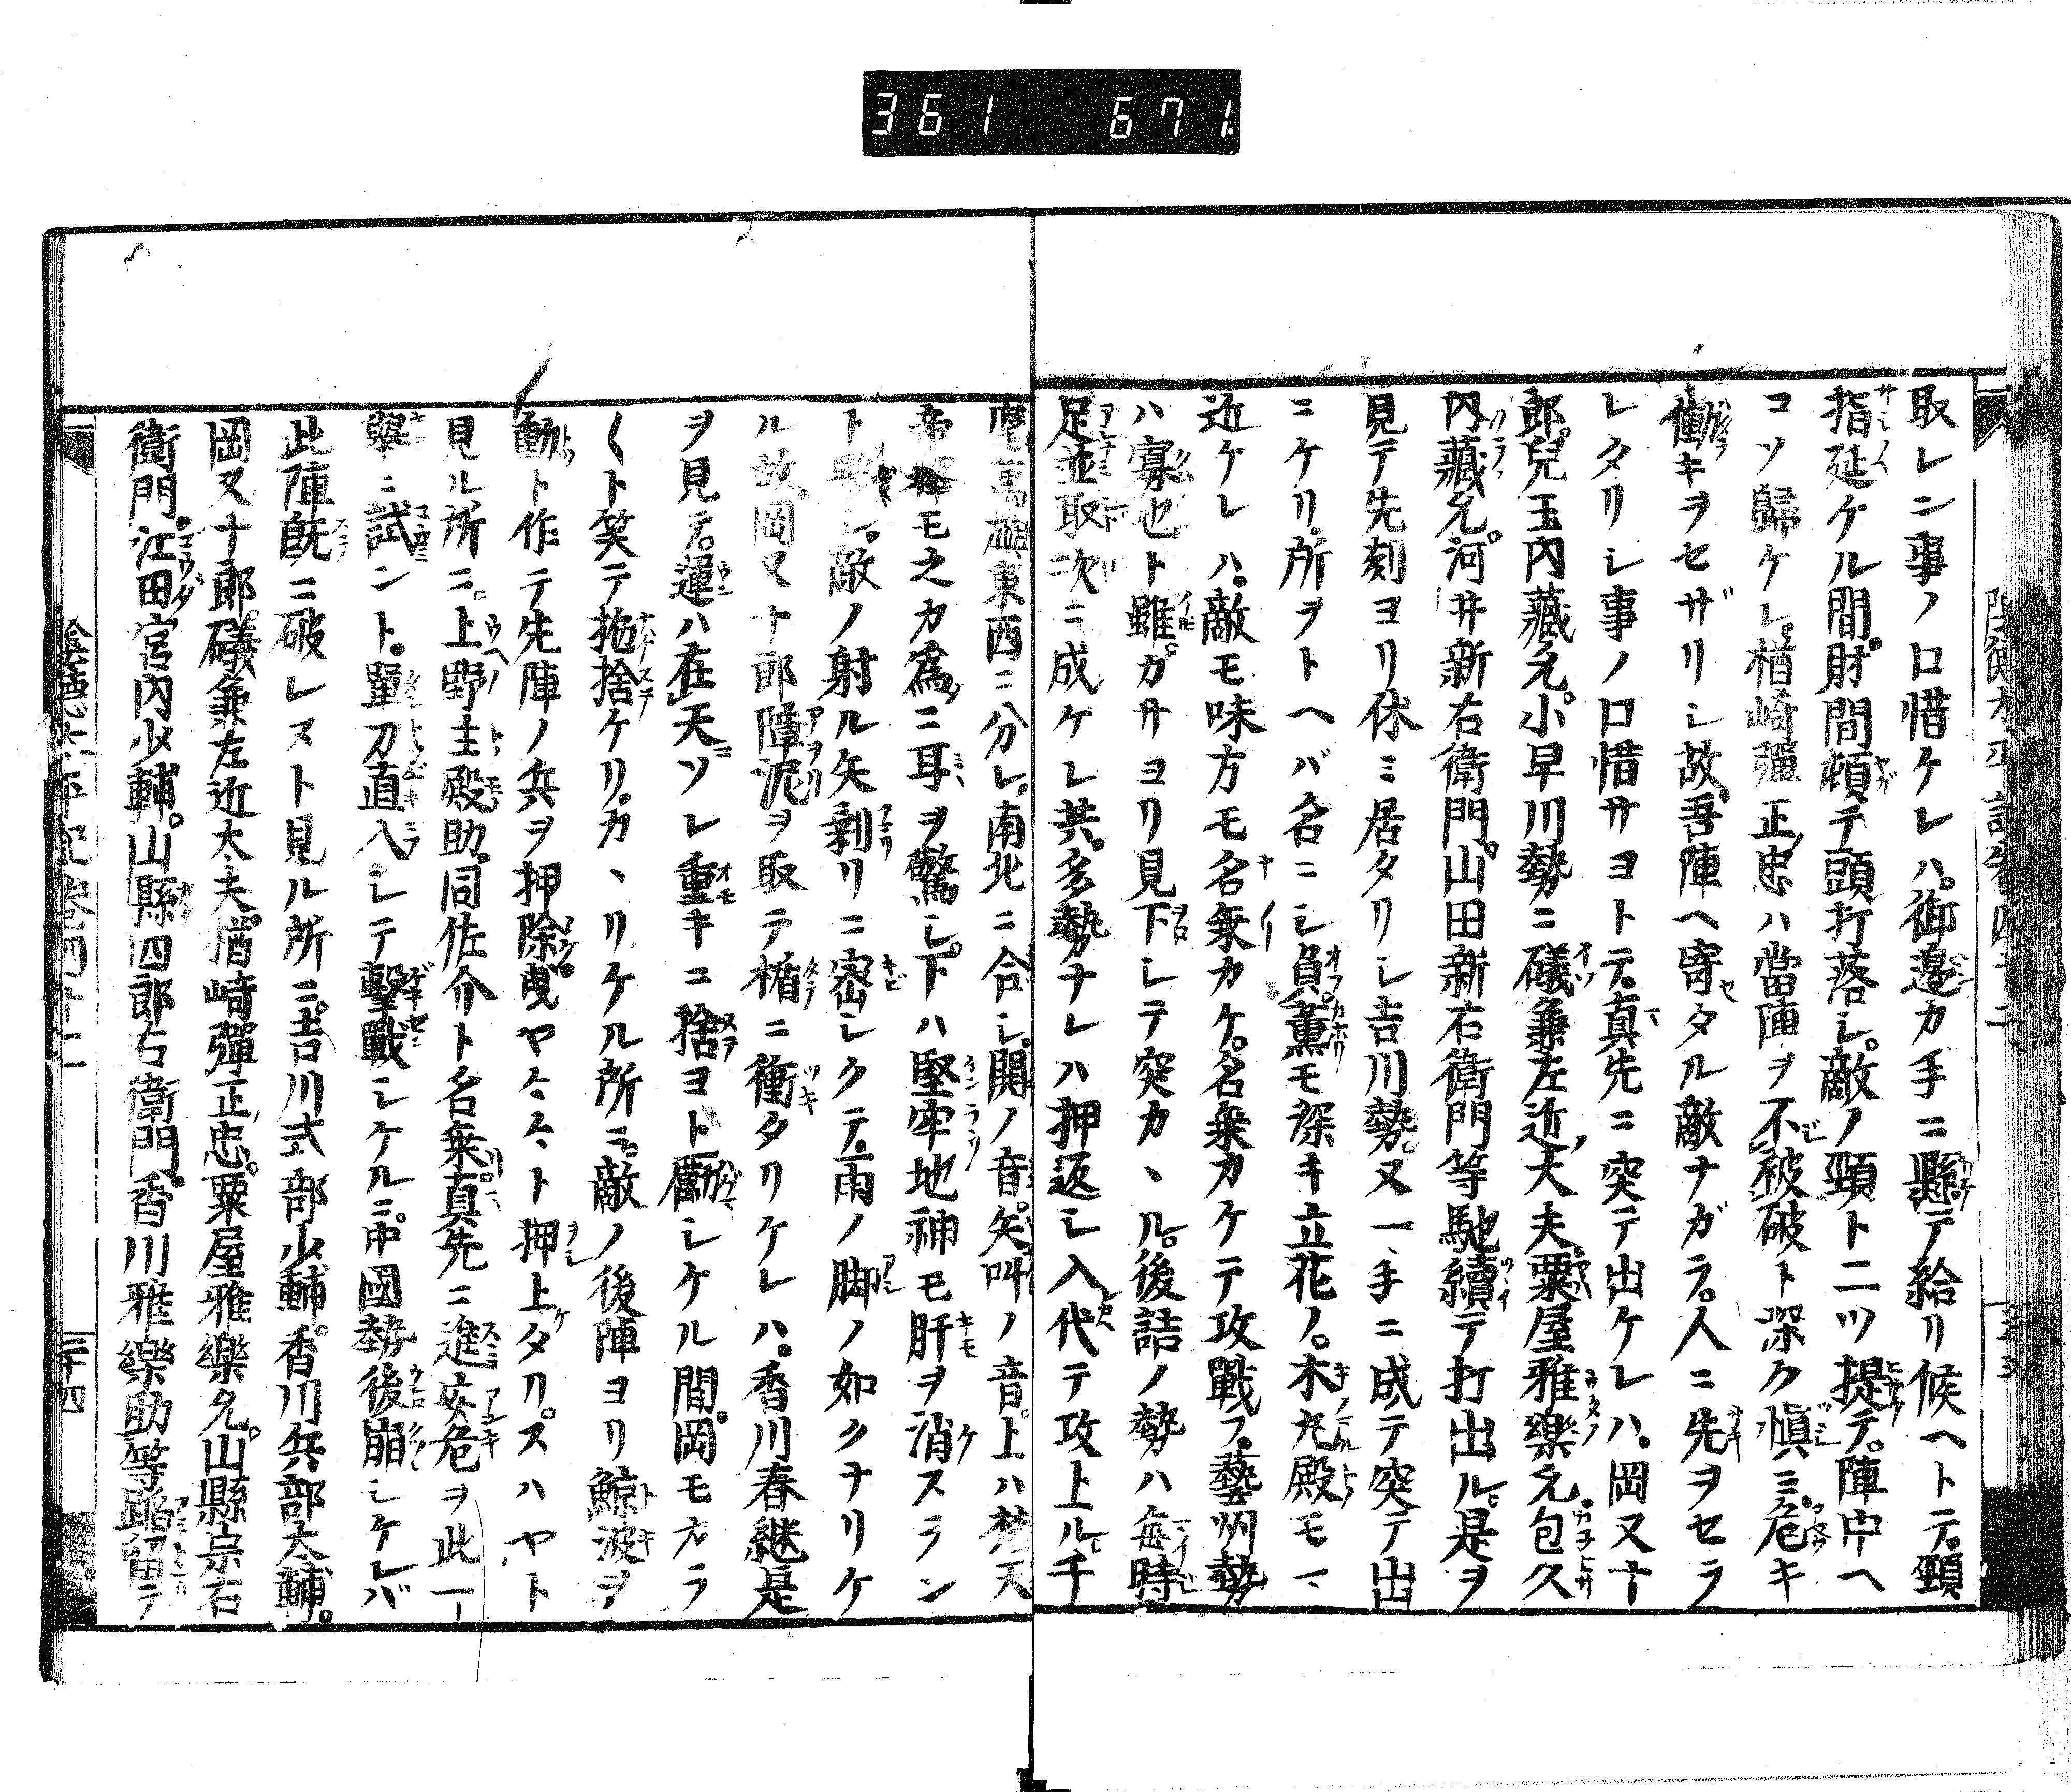 361 671
取レン事ノ口惜ケレハ。御邊カ手ニ懸テ給リ候ヘトテ。頸
指延ケル間。財間頓テ頭打落シ。敵ノ頸ト二ツ提テ。陣中ヘ
コソ歸ケレ。楢崎彈正忠ハ當陣ヲ不被破ト深ク愼ミ。危キ
働キヲセザリシ故。吾陣ヘ寄タル敵ナガラ。人ニ先ヲセラ
レタリシ事ノ口惜サヨトテ。真先ニ突テ出ケレハ。岡又十
郎。兒玉内藏允。小早川勢ニ礒兼左近大夫。粟屋雅樂允。包久
内藏允。河井新右衛門。山田新右衛門等馳續テ打出ル。是ヲ
見テ先刻ヨリ休ミ居タリシ吉川勢又一手ニ成テ突テ出
ニケリ。所ヲトヘバ名ニシ負。薫モ深キ立花ノ。木丸殿モ一
近ケレハ。敵モ味方モ名乗カケ。名乗カケテ攻戰フ。藝州勢
ハ寡也ト雖。カサヨリ見下シテ突カヽル。後詰ノ勢ハ毎時
足並取次ニ成ケレ共。多勢ナレハ押返シ入代テ攻上ル。千
磨萬𣞙東西ニ分レ。南北ニ合シ。鬨ノ音。矢叫ノ音。上ハ梵天
帝釋モ之カ為ニ耳ヲ驚シ。下ハ堅牢地神モ肝ヲ消スラン
ト。敵ノ射ル矢剩リニ密シクテ。雨ノ脚ノ如クナリケ
ル故。岡又十郎障泥ヲ取テ楯ニ衝タリケレハ。香川春継是
ヲ見テ。運ハ在天ソレ重キコ捨ヨト勵シケル間。岡モカラ
〱ト笑テ拖捨ケリ。カヽリケル所ニ。敵ノ後陣ヨリ鯨波ヲ
動ト作テ先陣ノ兵ヲ押除。曵ヤ〻〻ト押上タリ。スハヤト
見ル所ニ。上野主殿助。同佐介ト名乗。真先ニ進。安危ヲ此一
舉ニ試ント。單刀直入シテ撃戰シケルニ。中國勢後崩シケレバ
此陣既ニ破レヌト見ル所ニ。吉川式部少輔。香川兵部大輔。
岡又十郎。礒兼左近大夫。楢崎彈正忠。粟屋雅樂允。山縣宗右
衛門。江田宮内少輔。山縣四郎右衛門。香川雅樂助等蹈留テ
陰徳太平記卷四十二
三十四